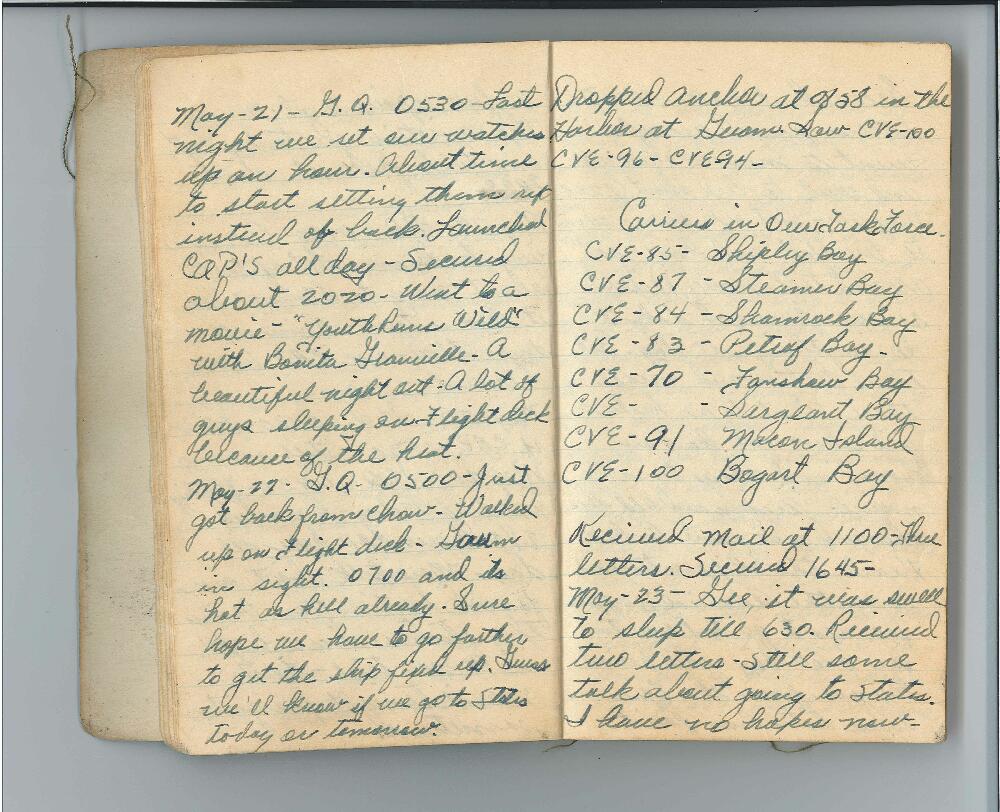 May-21- G.Q. 0530-Last
night we set our watches
up an hour. About time
to start setting them up
instead of back. Launched
CAP'S all day - Secured
about 2020- Went to a
movie- "Youth Runs Wild"
with Bonita Granville- A
beautiful night out. A lot of
guys sleeping on Flight deck
because of the heat.
May-22- G.Q. 0500-Just
got back from chow- Walked
up on Flight deck- Guam
in sight. 0700 and its
hot as hell already. Sure
hope we have to go farther
to get the ship fixed up. Guess
we'll know if we go to States
today or tomorrow.
Dropped anchor at 0858 in the
Harbor at Guam. Saw CVE-100
CVE-96- CVE94-
Carriers in Our Task Force.
CVE-85- Shipley Bay
CVE-87 - Steamer Bay
CVE-84 - Shamrock Bay
CVE-83 - Petrof Bay-
CVE-70 - Fanshaw Bay
CVE- - Sargeant Bay
CVE-91 Macon Island
CVE-100 Bogart Bay
Received mail at 1100-Three
letters. Secured 1645-
May-23- Gee, it was swell
to sleep till 630. Received
two letters-still some
talk about going to States.
I have no hopes now-